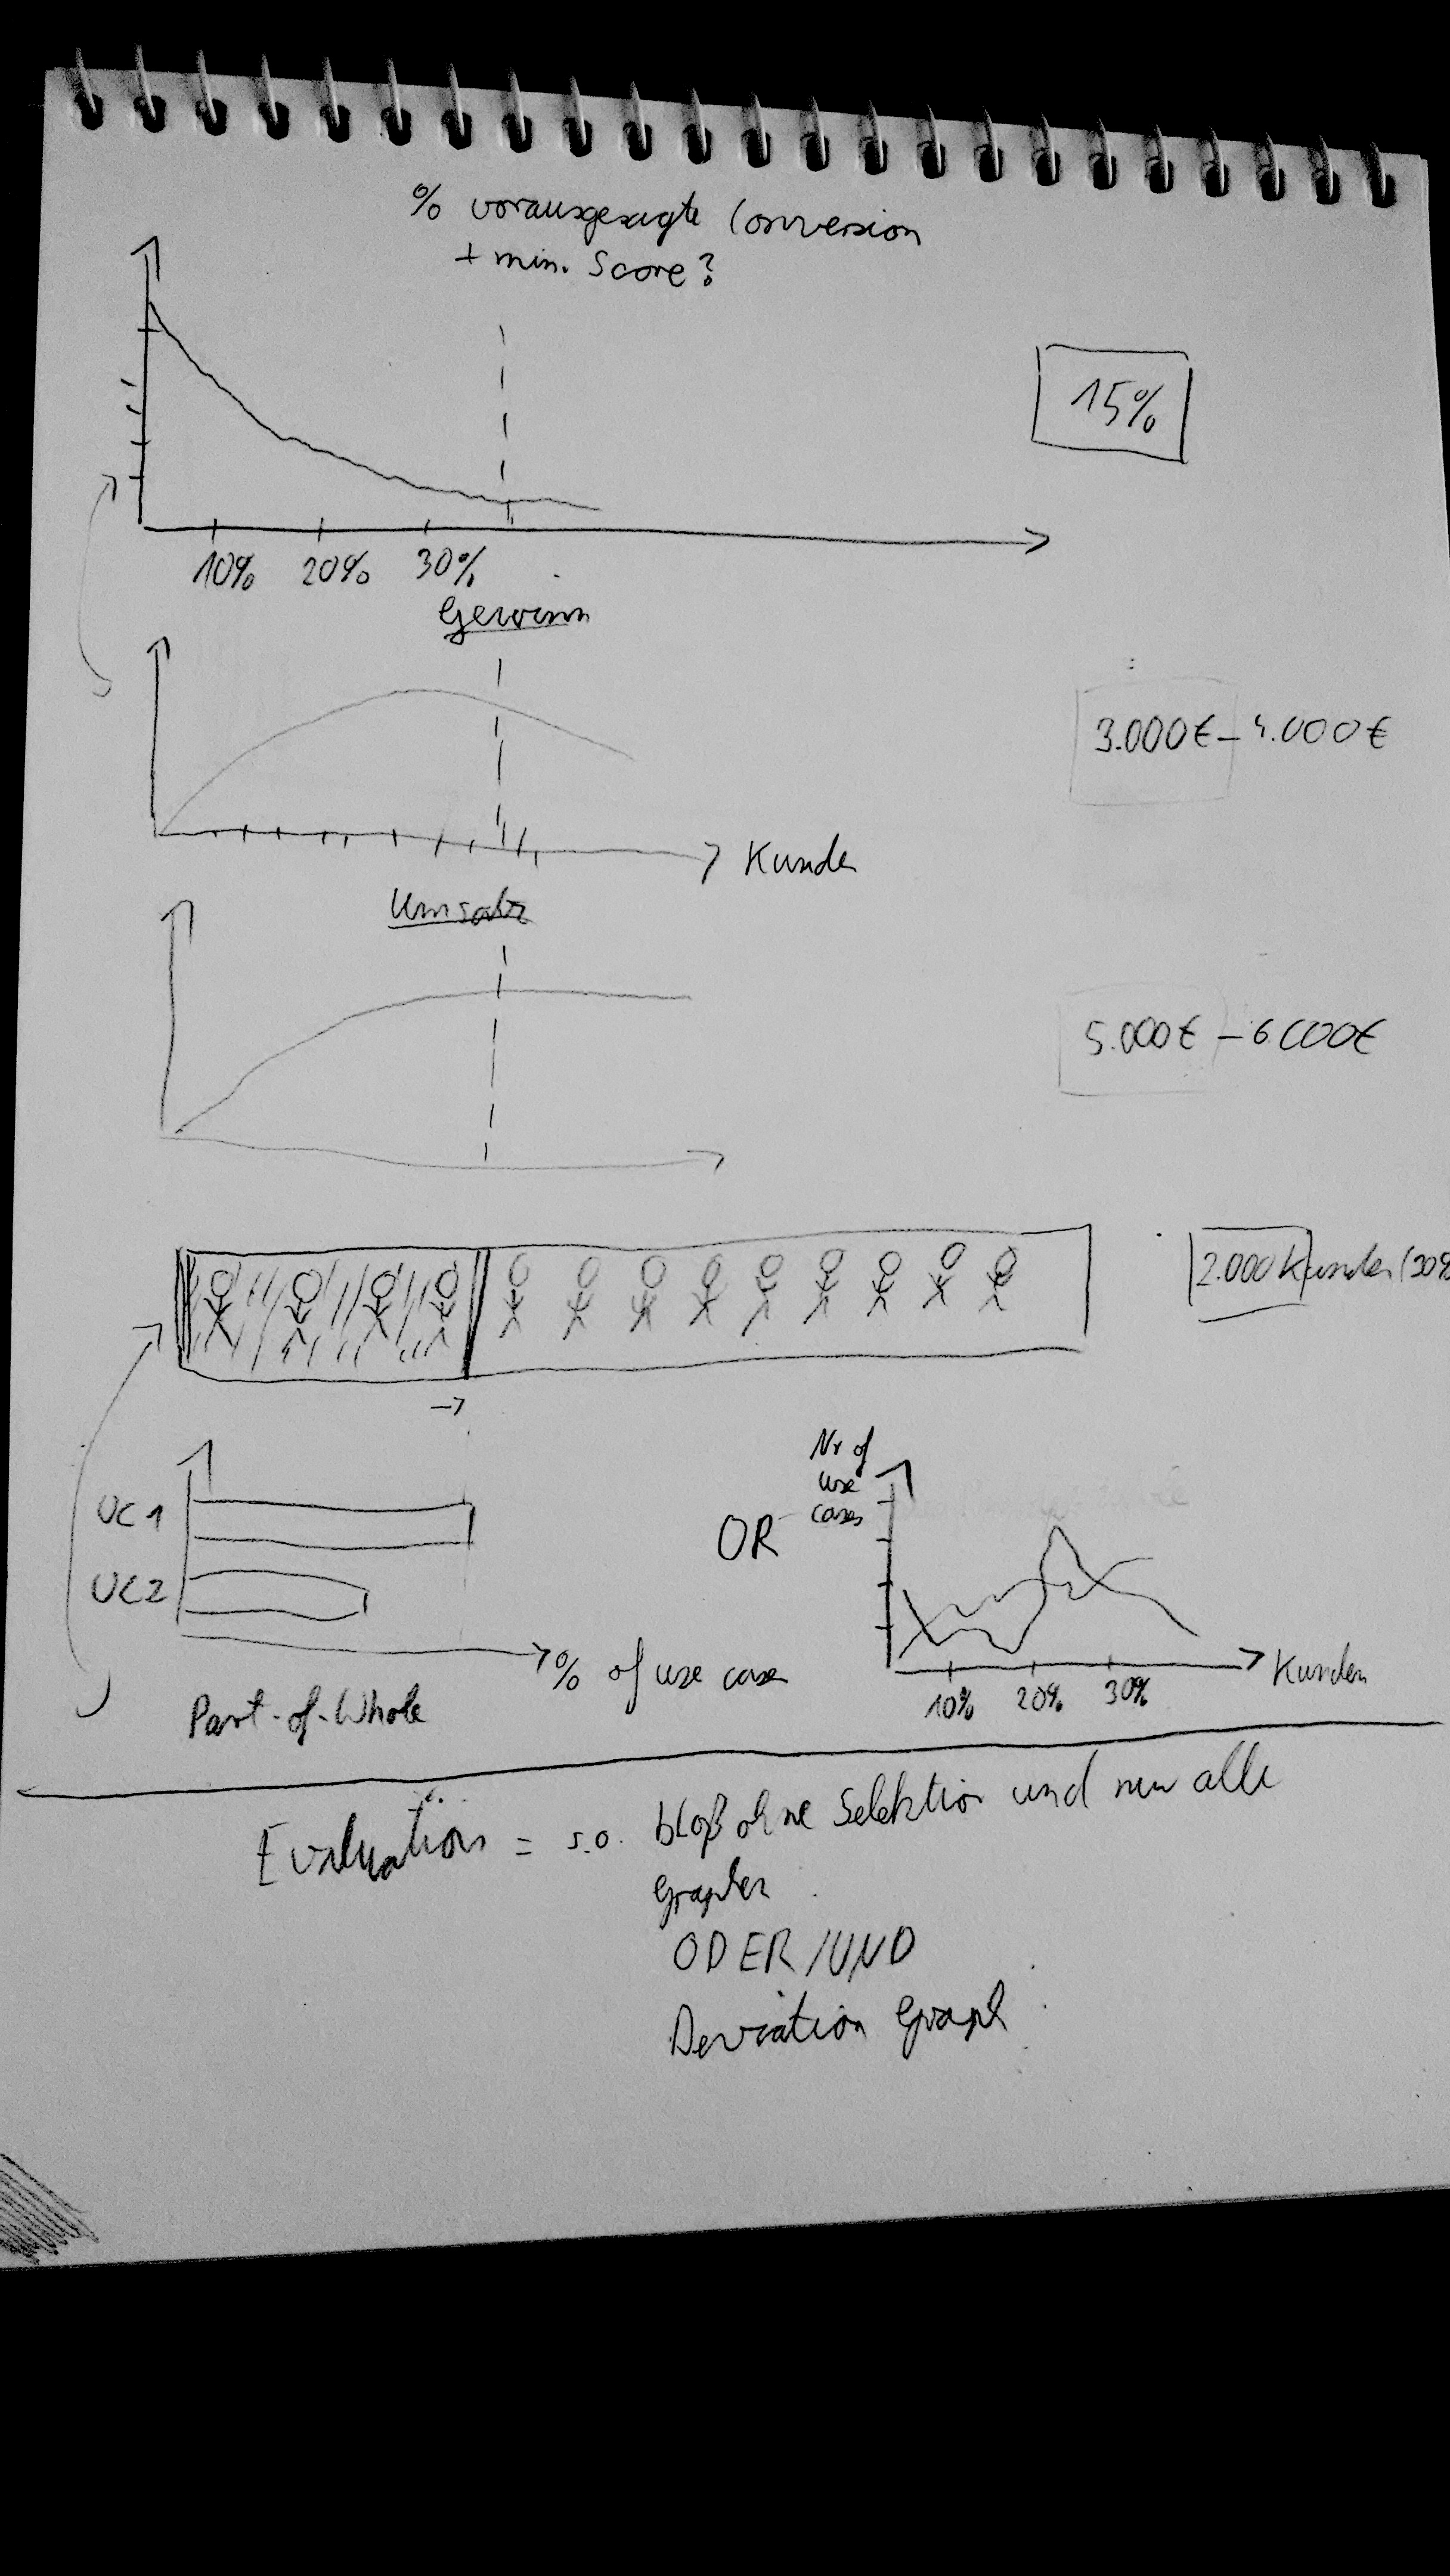 % vorausgesagte Conversion
+ min. Score?
15%
10% 20% 30%
Gewinn
3.000€ – 4.000€
Kunden
Umsatz
5.000€ – 6000€
2.000 Kunden (20%
→
UC1
UC2
% of use case
Part-of-Whole
OR
Nr of
use
cases
10% 20% 30%
Kunden
Evaluation = s.o. bloß ohne Selektion und nur alle
Graphen
ODER/UND
Deviation Graph